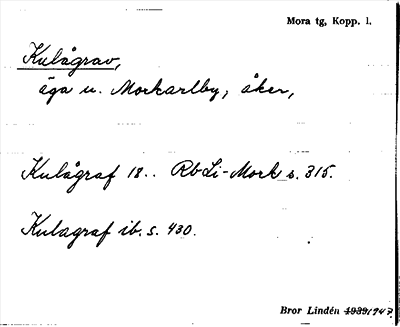 Mora tg, Kopp. l.
Kulågrav,
äga u. Morkarlby, åker,
Kulågraf 18.. Rb Li-Mork s. 315.
Kulagraf ib. s. 430.
Bror Lindén 1939/747